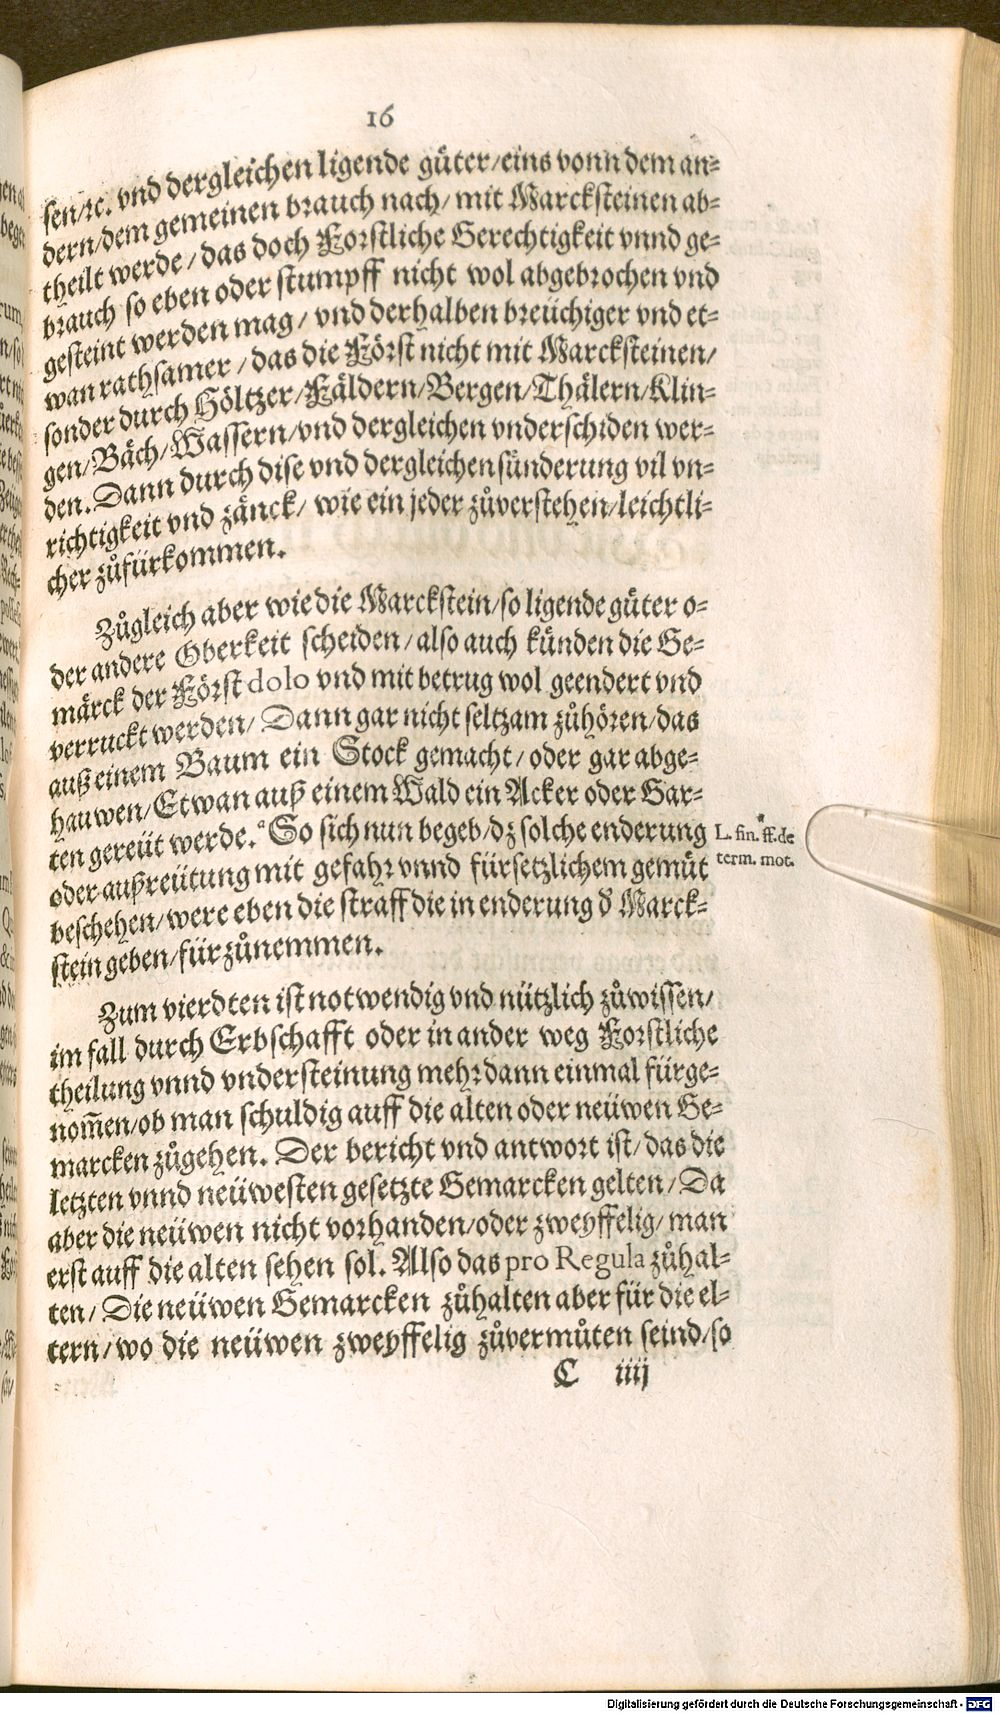 16
sen/ꝛc. vnd dergleichen ligende güter/eins vonn dem an⸗
dern/dem gemeinen brauch nach/ mit Marcksteinen ab⸗
theilt werde/das doch Forstliche Gerechtigkeit vnnd ge⸗
brauch so eben oder stumpff nicht wol abgebrochen vnd
gesteint werden mag/ vnd derhalben breüchiger vnd et⸗
wan rathsamer/das die Först nicht mit Marcksteinen/
sonder durch Höltzer/Fäldern/Bergen/Thälern/Klin⸗
gen/Bäch/Wassern/vnd dergleichen vnderschiden wer⸗
den. Dann durch dise vnd dergleichen sünderung vil vn⸗
richtigkeit vnd zänck/ wie ein jeder zůverstehen/leichtli⸗
cher zůfürkommen.
Zůgleich aber wie die Marckstein/so ligende güter o⸗
der andere Oberkeit scheiden/also auch künden die Ge⸗
märck der Först dolo vnd mit betrug wol geendert vnd
verruckt werden/ Dann gar nicht seltzam zůhören/das
auß einem Baum ein Stock gemacht/ oder gar abge⸗
hauwen/Etwan auß einem Wald ein Acker oder Gar⸗
ten gereüt werde.ᵃ So sich nun begeb/dz solche enderung
oder außreütung mit gefahr vnnd fürsetzlichem gemüt
beschehen/were eben die straff die in enderung d̕ Marck⸗
stein geben/fürzůnemmen.
ᵃ
L. fin. ff. de
term. mot.
Zum vierdten ist notwendig vnd nützlich zůwissen/
im fall durch Erbschafft oder in ander weg Forstliche
theilung vnnd vndersteinung mehr dann einmal fürge⸗
nom̄en/ob man schuldig auff die alten oder neüwen Ge⸗
marcken zůgehen. Der bericht vnd antwort ist/das die
letzten vnnd neüwesten gesetzte Gemarcken gelten/Da
aber die neüwen nicht vorhanden/oder zweyffelig/man
erst auff die alten sehen sol. Also das pro Regula zůhal⸗
ten/ Die neüwen Gemarcken zůhalten aber für die el⸗
tern/wo die neüwen zweyffelig zůvermůten seind/so
C iiij
Digitalisierung gefördert durch die Deutsche Forschungsgemeinschaft - DFG